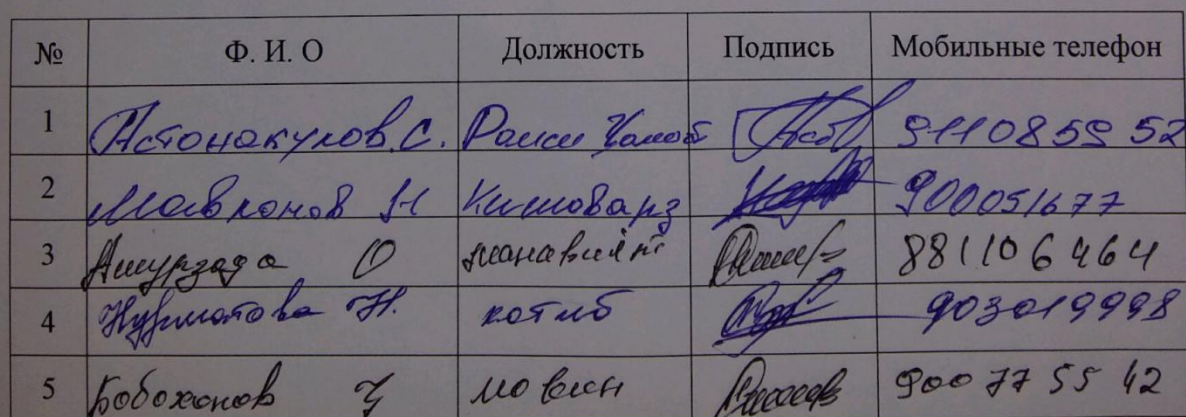 № Ф. И. О Должность Подпись Мобильные телефон
1 Астонакулов С. Раиси Ҷамоат 911085952
2 Мавлонов Н Кишоварз 900051677
3 Ашурзада О 881106464
4 Нурматова Н. котиб 903019998
5 Бобохонов Ҷ 900775542